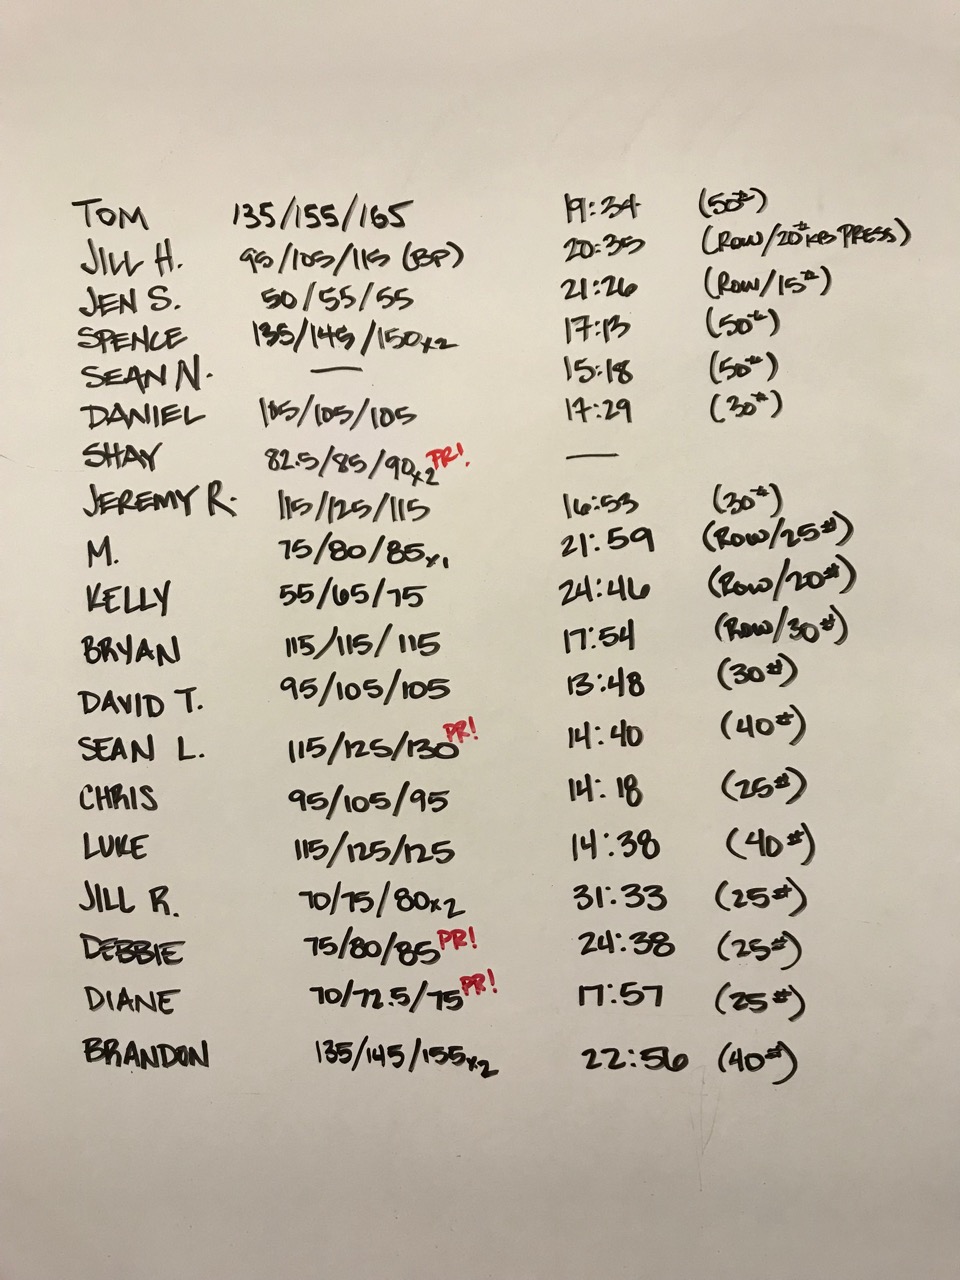 TOM 135/155/165 19:34 (50#)
JILL H. 95/105/115 (BP) 20:35 (ROW/20# KB PRESS)
JEN S. 50/55/55 21:26 (ROW/15#)
SPENCE 135/145/150x2 17:13 (50#)
SEAN N. — 15:18 (50#)
DANIEL 105/105/105 17:29 (30#)
SHAY 82.5/85/90x2 PR! —
JEREMY R. 115/125/115 16:53 (30#)
M. 75/80/85x1 21:59 (ROW/25#)
KELLY 55/65/75 24:46 (ROW/20#)
BRYAN 115/115/115 17:54 (ROW/30#)
DAVID T. 95/105/105 13:48 (30#)
SEAN L. 115/125/130 PR! 14:40 (40#)
CHRIS 95/105/95 14:18 (25#)
LUKE 115/125/125 14:38 (40#)
JILL R. 70/75/80x2 31:33 (25#)
DEBBIE 75/80/85 PR! 24:38 (25#)
DIANE 70/72.5/75 PR! 17:57 (25#)
BRANDON 135/145/155x2 22:56 (40#)